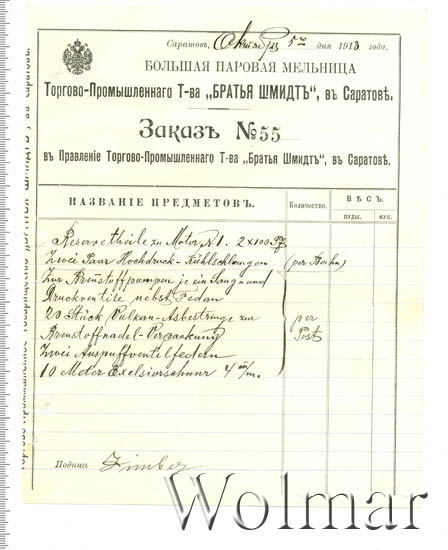 Саратовъ, Октября 5го дня 1913 года.
БОЛЬШАЯ ПАРОВАЯ МЕЛЬНИЦА
Торгово-Промышленнаго Т-ва „БРАТЬЯ ШМИДТЪ", въ Саратовѣ.
Заказъ №55
въ Правленіе Торгово-Промышленнаго Т-ва „Братья Шмидтъ", въ Саратовѣ.
НАЗВАНІЕ ПРЕДМЕТОВЪ.
Количество.
ВѢСЪ.
ПУДЫ.
ФУН.
Reservetheile zu Motor N1. 2x100 Pf.
Zwei Paar Hochdruck-Kühlschlangen
(per Bahn)
Zur Brenstoffpumpen je ein Saug und
Druckventile nebst Federn
20 Stück Vulkan-Asbestringe zur
per
Brenstoffnadel-Verpackung
Post
Zwei Auspuffventilfedern
10 Meter Exelsiorschnur 4 m/m.
Подпись
Wolmar